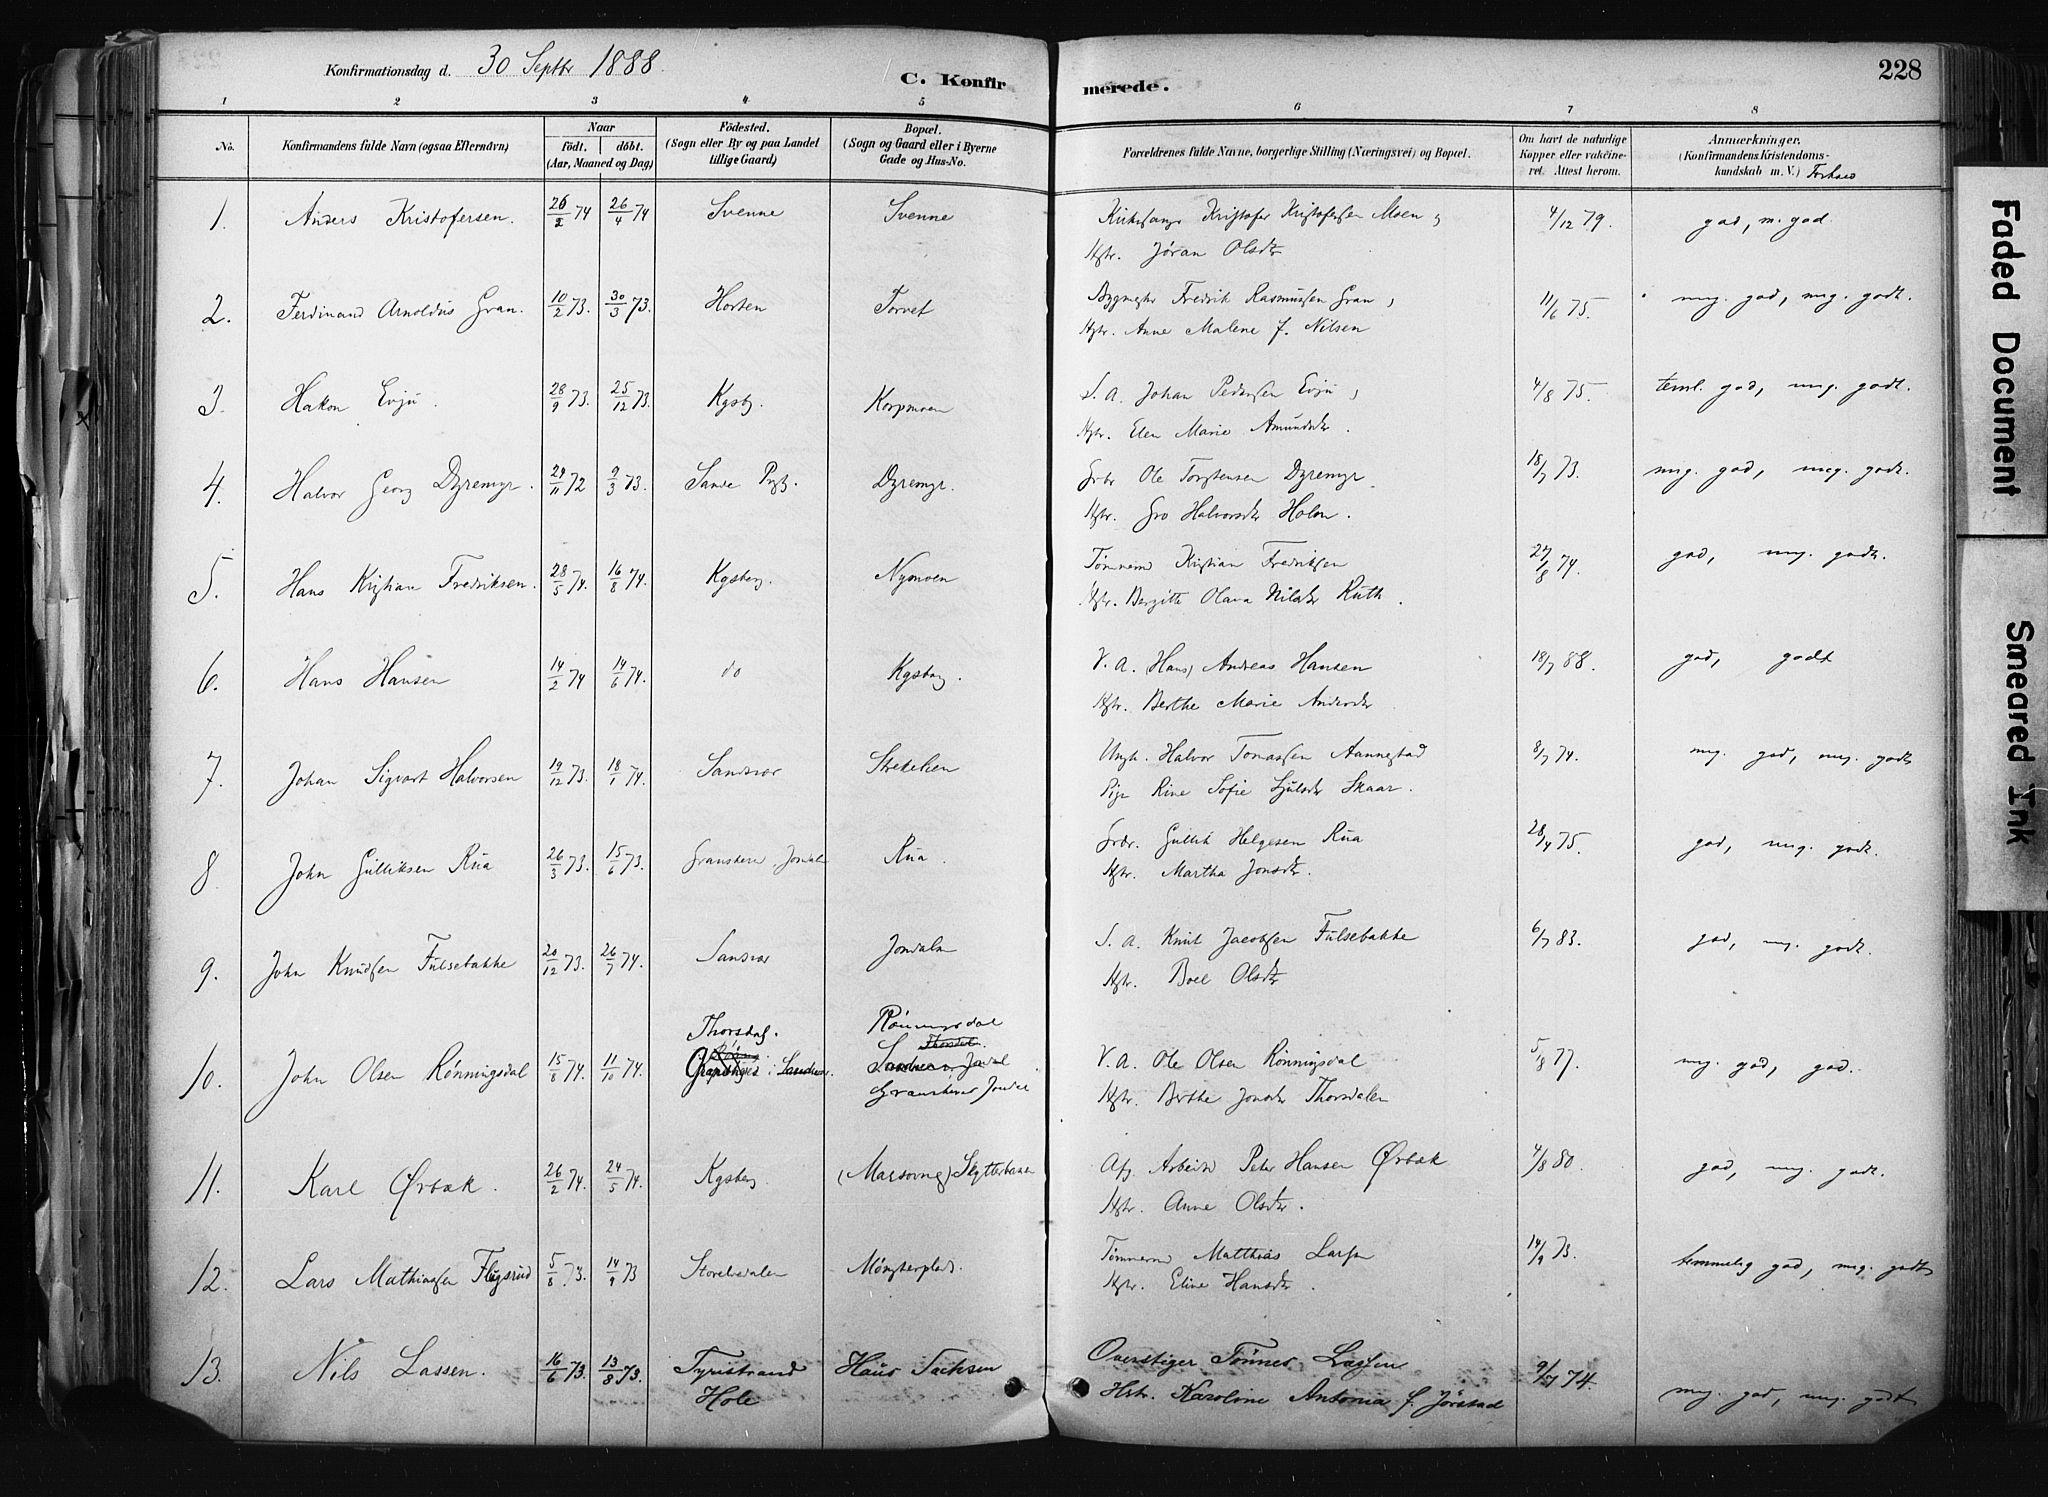 Konfirmationsdag d. 30 Septbr 1888.
C. Konfir merede.
228
1 2 3 4 5 6 7 8
No. Konfirmandens fulde Navn (ogsaa Efternavn) Naar født. døbt. (Aar, Maaned og Dag) Fødested. (Sogn eller By og paa Landet tillige Gaard) Bopæl. (Sogn og Gaard eller i Byerne Gade og Hus-No. Forældrenes fulde Navne, borgerlige Stilling (Næringsvei) og Bopæl. Om havt de naturlige Kopper eller vakcineret. Attest herom. Anmærkninger. (Konfirmandens Kristendomskundskab m. V.)
1. Anders Kristofersen. 26/2 74 26/4 74 Svenne Svenne Kristofer Kristofersen Moen 4/12 79. god, m. god
Hstr. Jøran Olsdtr
2. Ferdinand Arnoldus Gran. 10/2 73. 30/3 73. Horten Torvet Fredrik Rasmussen Gran, 11/6 75. mg. god, mg. godt.
Hstr. Anne Malene f. Nilsen
3. Hakon Evju. 28/9 73. 25/12 73. Kgsbg. Korpmoen S. A. Johan Pedersen Evju, 4/8 75. teml. god, mg. godt.
Hstr. Elen Marie Amundsdtr.
4. Halvor Georg Dyremyr. 29/11 72 9/3 73. Sande Dyremyr. Grbr Ole Torstensen Dyremyr 18/7 73. mg. god, mg. godt.
Hstr. Gro Halvorsdtr Holm.
5. Hans Kristian Fredriksen. 28/5 74. 16/8 74. Kgsberg. Nymoen Tømmerm Kristian Fredriksen 27/8 74. god, mg. godt.
Hstr. Bergitte Olava Nilsdtr Ruth.
6. Hans Hansen 14/2 74 14/6 74. do Kgsberg. V. A. (Hans) Andreas Hansen 18/7 88. god, godt
Hstr. Berthe Marie Andersdtr
7. Johan Sigvart Halvorsen 19/12 73. 18/1 74. Sandsvær Stekelien Ungk. Halvor Tomassen Aannestad 8/7 74. mg. god, mg. godt
Pige Rine Sofie Skaar.
8 John Gulliksen Rua 26/3 73. 15/6 73. Granshered. Jondal Rua. Grbr. Gullik Helgesen Rua 28/4 75. god, mg. godt.
Hstr. Martha Jonsdtr.
9. John Knudsen Fulsebakke 20/12 73. 26/7 74. Sandsvær Jondalen S. A. Knut Jacobsen Fulsebakke 6/7 83. god, mg. godt.
Hstr. Boel Olsdtr
Thorsdal. Rönningsdal
10. John Olsen Rønningsdal 15/8 74. 11/10 74. i Sandsvær. Jondal V. A. Ole Olsen Rønningsdal 5/8 77. mg. god, god.
Granshered Jondal Hstr. Berthe Jonsdtr Thorsdalen
11. Karl Ørbæk. 26/2 74. 24/5 74. Kgsberg. Skytterbanen Afg. Arbeider Peter Hansen Ørbæk 4/8 80. god, mg. godt.
Hstr. Anne Olsdtr.
12. Lars Mathiassen Flugsrud 5/8 73. 14/9 73 Storelvdalen Mønsterplads. Tømmerm Matthias Larsen 14/9 73. temmelig god, mg. godt
Hstr. Eline Hansdtr.
13. Nils Lassen. 16/6 73 13/8 73. Tyristrand Haus Sachsen Overstiger Tönnes Lassen 9/7 74. mg. god, mg. godt
Hole Hstr. Karoline Antonia f. Jørstad
Faded Document
Smeared Ink